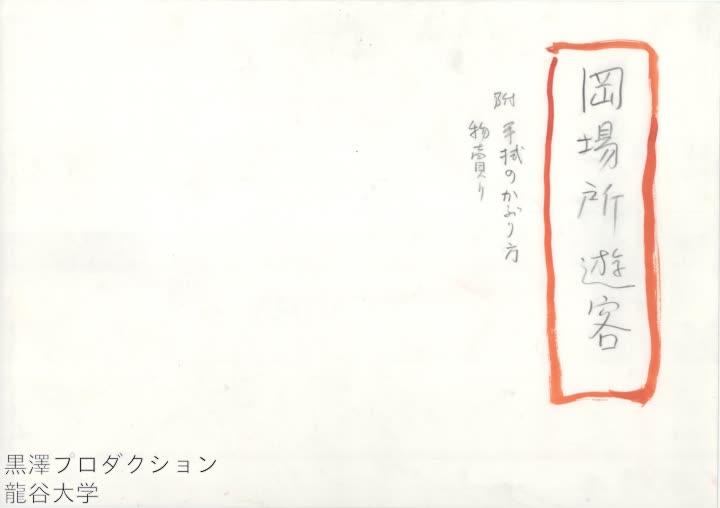 岡場所遊客
附 手拭のかぶり方
物賣り
黒澤プロダクション
龍谷大学